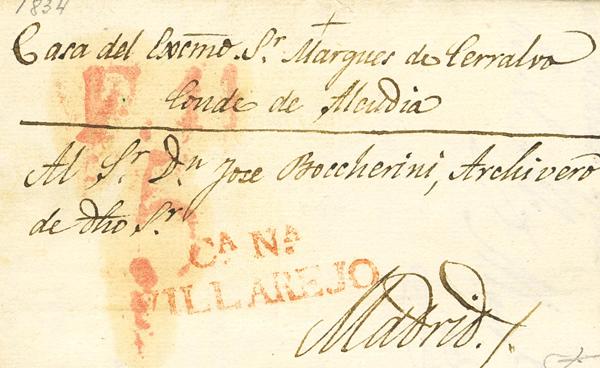 1834
Casa del Excmo. Sr. Marques de Cerralvo
Conde de Alcudia
Al Sr. Dn. Jose Boccherini, Archivero
de dho Sr.
CA. NA.
VILLAREJO
Madrid.